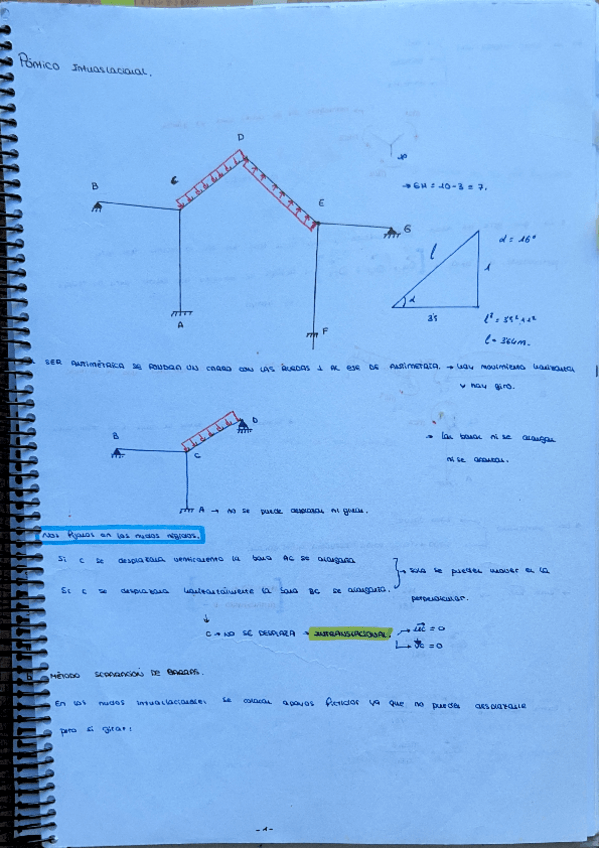 Pórtico intraslacional.
D
B
C
→ GH = 10-3 = 7.
E
G
l
α = 16°
1
α
A
3'5
l² = 3'5² + 1²
F
l = 3'64m.
SER ANTIMÉTRICA SE PONDRÁ UN CARRO CON LAS RUEDAS ⊥ AL EJE DE ANTIMETRÍA. → hay movimiento horizontal
y hay giro.
D
B
C
→ Las barras ni se alargan
ni se acortan.
A → no se puede desplazar ni girar.
Nos fijamos en los nudos rígidos.
Si C se desplazara verticalmente la barra AC se alargaría
Si C se desplazara horizontalmente la barra BC se alargaría.
→ solo se pueden mover en la
perpendicular.
C → NO SE DESPLAZA → INTRANSLACIONAL.
uc = 0
vc = 0
MÉTODO SEPARACIÓN DE BARRAS.
En los nudos intraslacionales se colocan apoyos ficticios ya que no pueden desplazarse
pero sí girar:
-1-